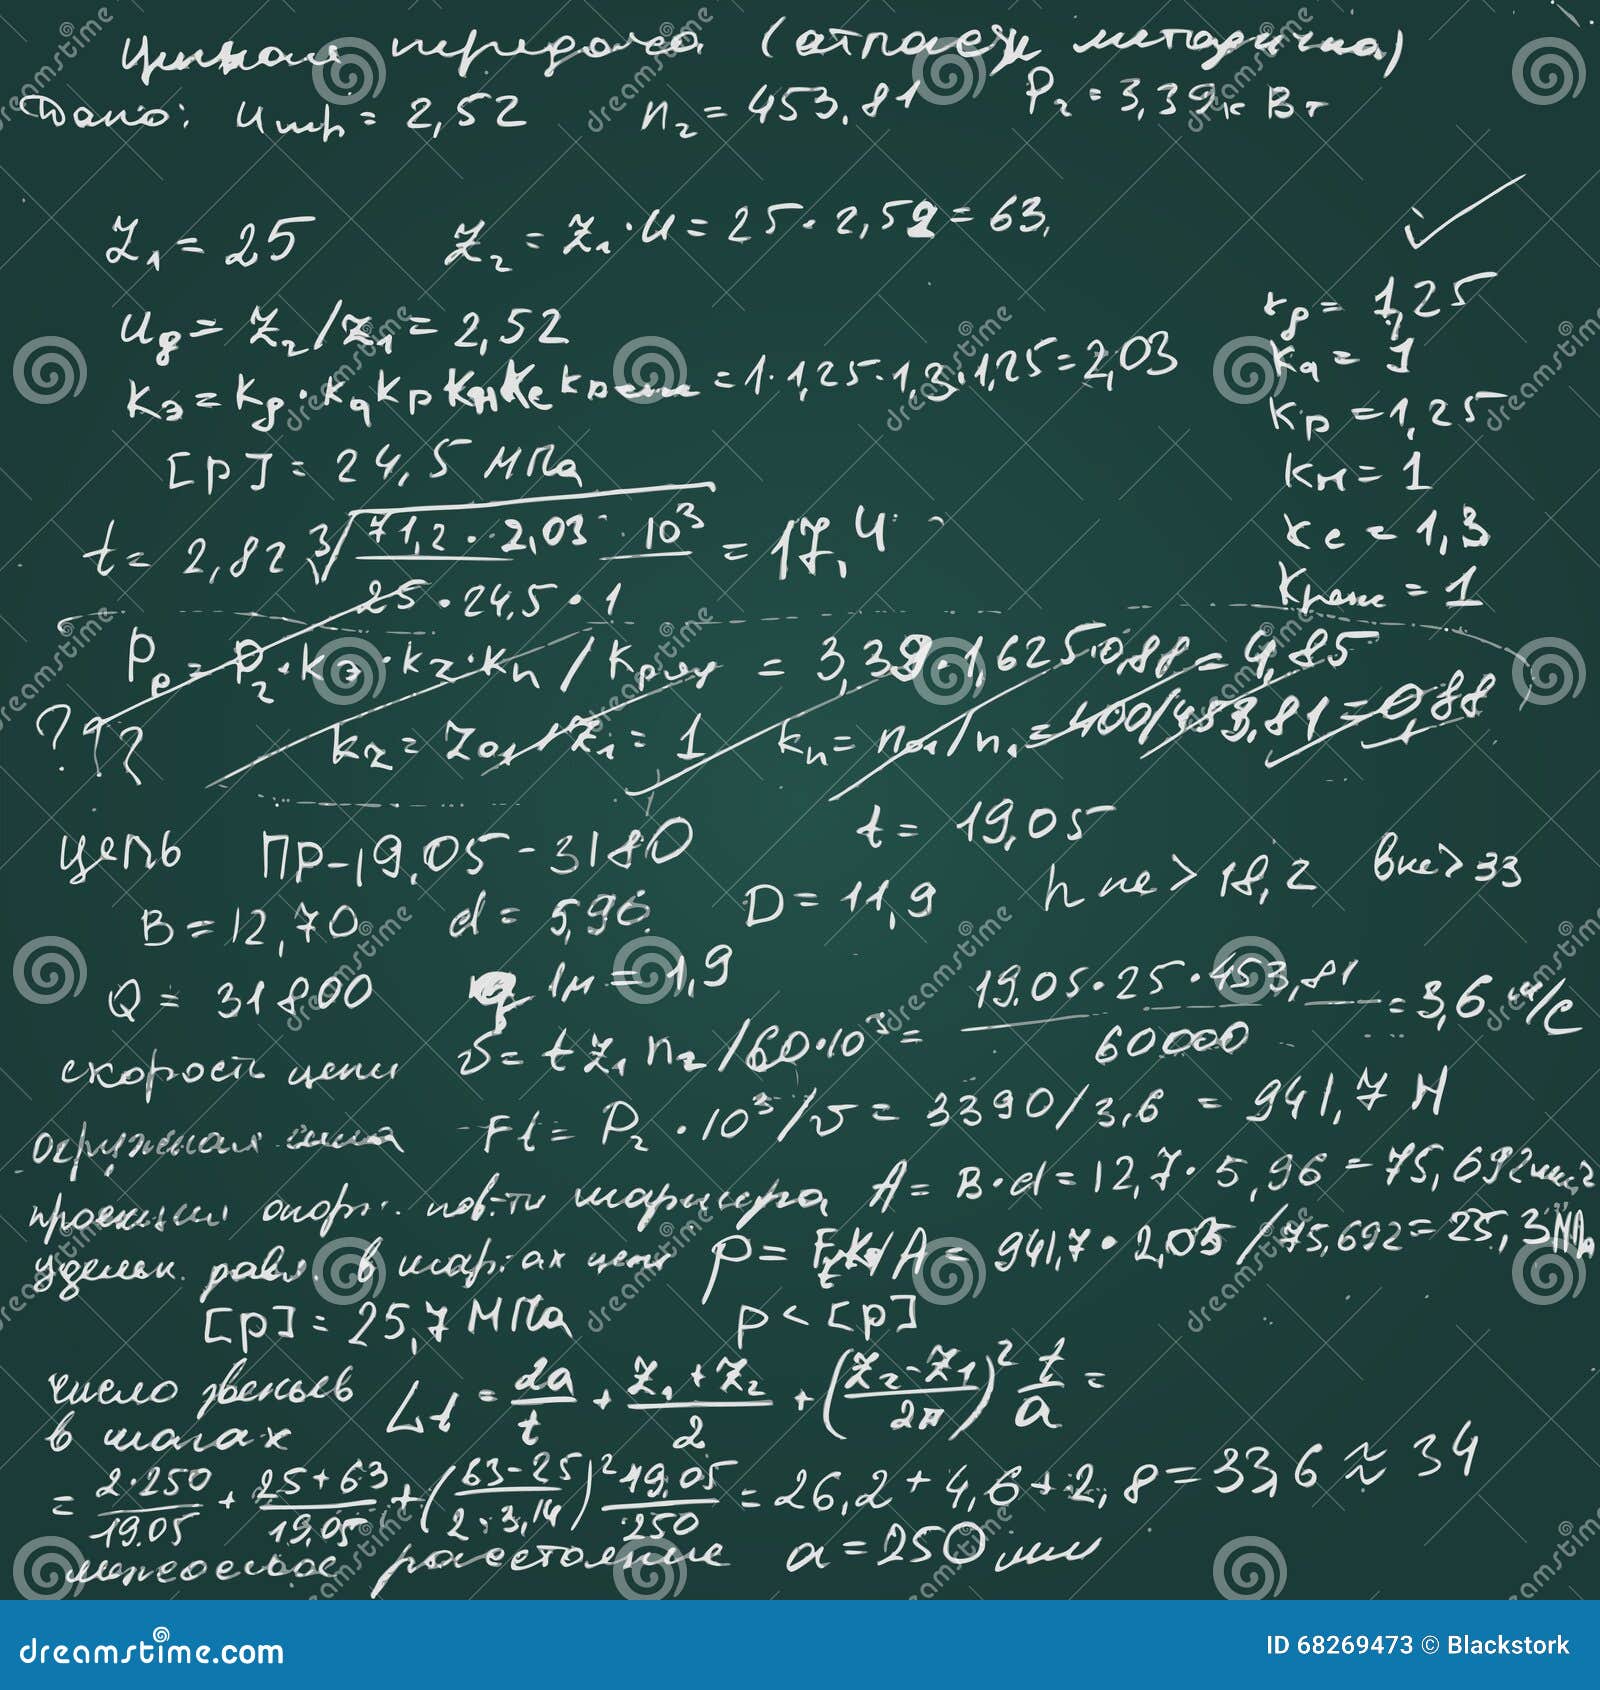 Цепная передача (отпаеж методичка)
Дано: Uцр = 2,52 n₂ = 453,81 P₂ = 3,39 кВт
Z₁ = 25 Z₂ = Z₁·U = 25·2,52 = 63,
Uд = Z₂/Z₁ = 2,52
Kэ = Kд·KаKрKнKсKреж = 1·1,25·1,3·1,25 = 2,03
Kд = 1,25
Kа = 1
Kр = 1,25
Kн = 1
Kс = 1,3
Kреж = 1
[P] = 24,5 МПа
t = 2,82 ∛(71,2·2,03·10³ / 25·24,5·1) = 17,4
Pр = P₂·Kэ·Kz·Kn / Kряд = 3,39·1,625·0,88 = 4,85
??? Kz = Z₀₁/Z₁ = 1 Kn = n₀₁/n₁ = 400/453,81 = 0,88
t = 19,05
цепь ПР-19,05-3180
B = 12,70 d = 5,96 D = 11,9 h не > 18,2 Bне > 33
Q = 31800 q 1м = 1,9
скорость цепи v = tZ₁n₂/60·10³ = 19.05·25·453,81 / 60000 = 3,6 м/с
окружная сила Ft = P₂·10³/v = 3390/3,6 = 941,7 Н
проекция опорн. пов-ти шарнира A = B·d = 12,7·5,96 = 75,692 мм²
удельн. давл. в шарнирах цепи p = FtKэ/A = 941,7·2,03/75,692 = 25,3 МПа
[p] = 25,7 МПа p < [p]
число звеньев
в шагах Lt = 2a/t + (Z₁+Z₂)/2 + ((Z₂-Z₁)/2π)² t/a =
= 2·250/19.05 + (25+63)/19,05 + ((63-25)/2·3,14)² 19,05/250 = 26,2 + 4,6 + 2,8 = 33,6 ≈ 34
межосевое расстояние a = 250 мм
dreamstime.com
ID 68269473 © Blackstork